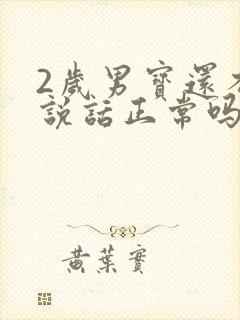 2歲男寶還不
說話正常嗎
黃葉實